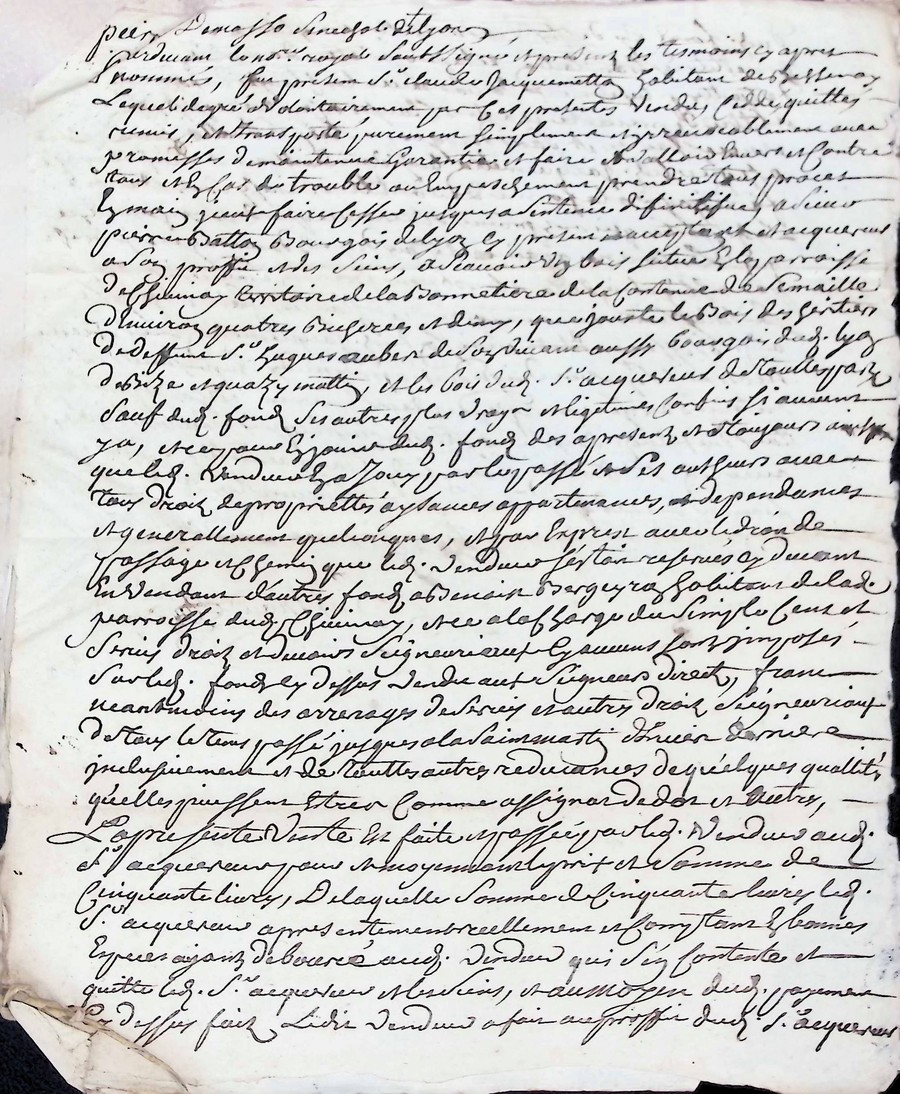 pdevant le no.re royal soubsigné et présent les tesmoins cy apres
nommés, fut présent S.r claude Jacquemetton habitant de Bessenay
Lequel de gré et volontairement par ces presentes vendu, cedde quitte
remis, et transporté purement simplement et irrevocablement avec
promesses de maintenue garantie et faire valloir envers et contre
tous et en cas de trouble ou empeschement prendre tous proces
En main jceux faire cesser jusques a sentence difinitifue, a Sieur
pierre Bourgois de lyon cy présent acceptant et acquereur
a son proffit et des siens, a scavoir un bois situé en la parroisse
de territoire de la Bonnetiere de la contenue de semaille
d'environ quatres bicherées et demy, que jouste le Bois des heritiers
de deffunt S.r hugues aubert de son vivant aussy bourgois dud. lyon
de bize et matin, et les bois dud. S.r acquereur de touttes parts
sauf dud. fond ses autres plus vrays et legitimes confins si aucuns
y a, et ce pour en jouir dud. fond des apresent et a toujours ainsy
que led. vendeur en a jouy par le passé et ses autheurs avec
tous droits de propriettés aysances appartenances, et dependances
et generallement quelconques, et par exprest avec le droit de
passage et chemin que led. vendeur s'estoit reservés cy devant
En vendant d'autres fonds a Benoist habitant de lad.
parroisse dud. et ce a la charge du simple cens et
servis droits et devoirs seigneuriaux sy aucuns sont jmposés
sur led. fond cy dessus vendu aux seigneurs directs, franc
neantmoins des arrerages de servis et autres droits seigneuriaux
de tous le tems passé jusques a la saint martin d'hiver derniere
jnclusivement et de touttes autres redevances de quelques quallités
qu'elles puissent estres comme assignat de dot et autres,
La presente vente est faite et passée par led. vendeur aud.
S.r acquereur pour et moyennant le prix et somme de
Cinquante livres, De laquelle somme de cinquante livres led.
S.r acquereur apresentement reellement et comptant en bonnes
Especes ayant deboursé aud. vendeur qui s'en contente et
quitte led. S.r acquereur et les siens, et au moyen dud. payement
Cy dessus fait Ledit vendeur a fait au proffit dud. S.r acquereur